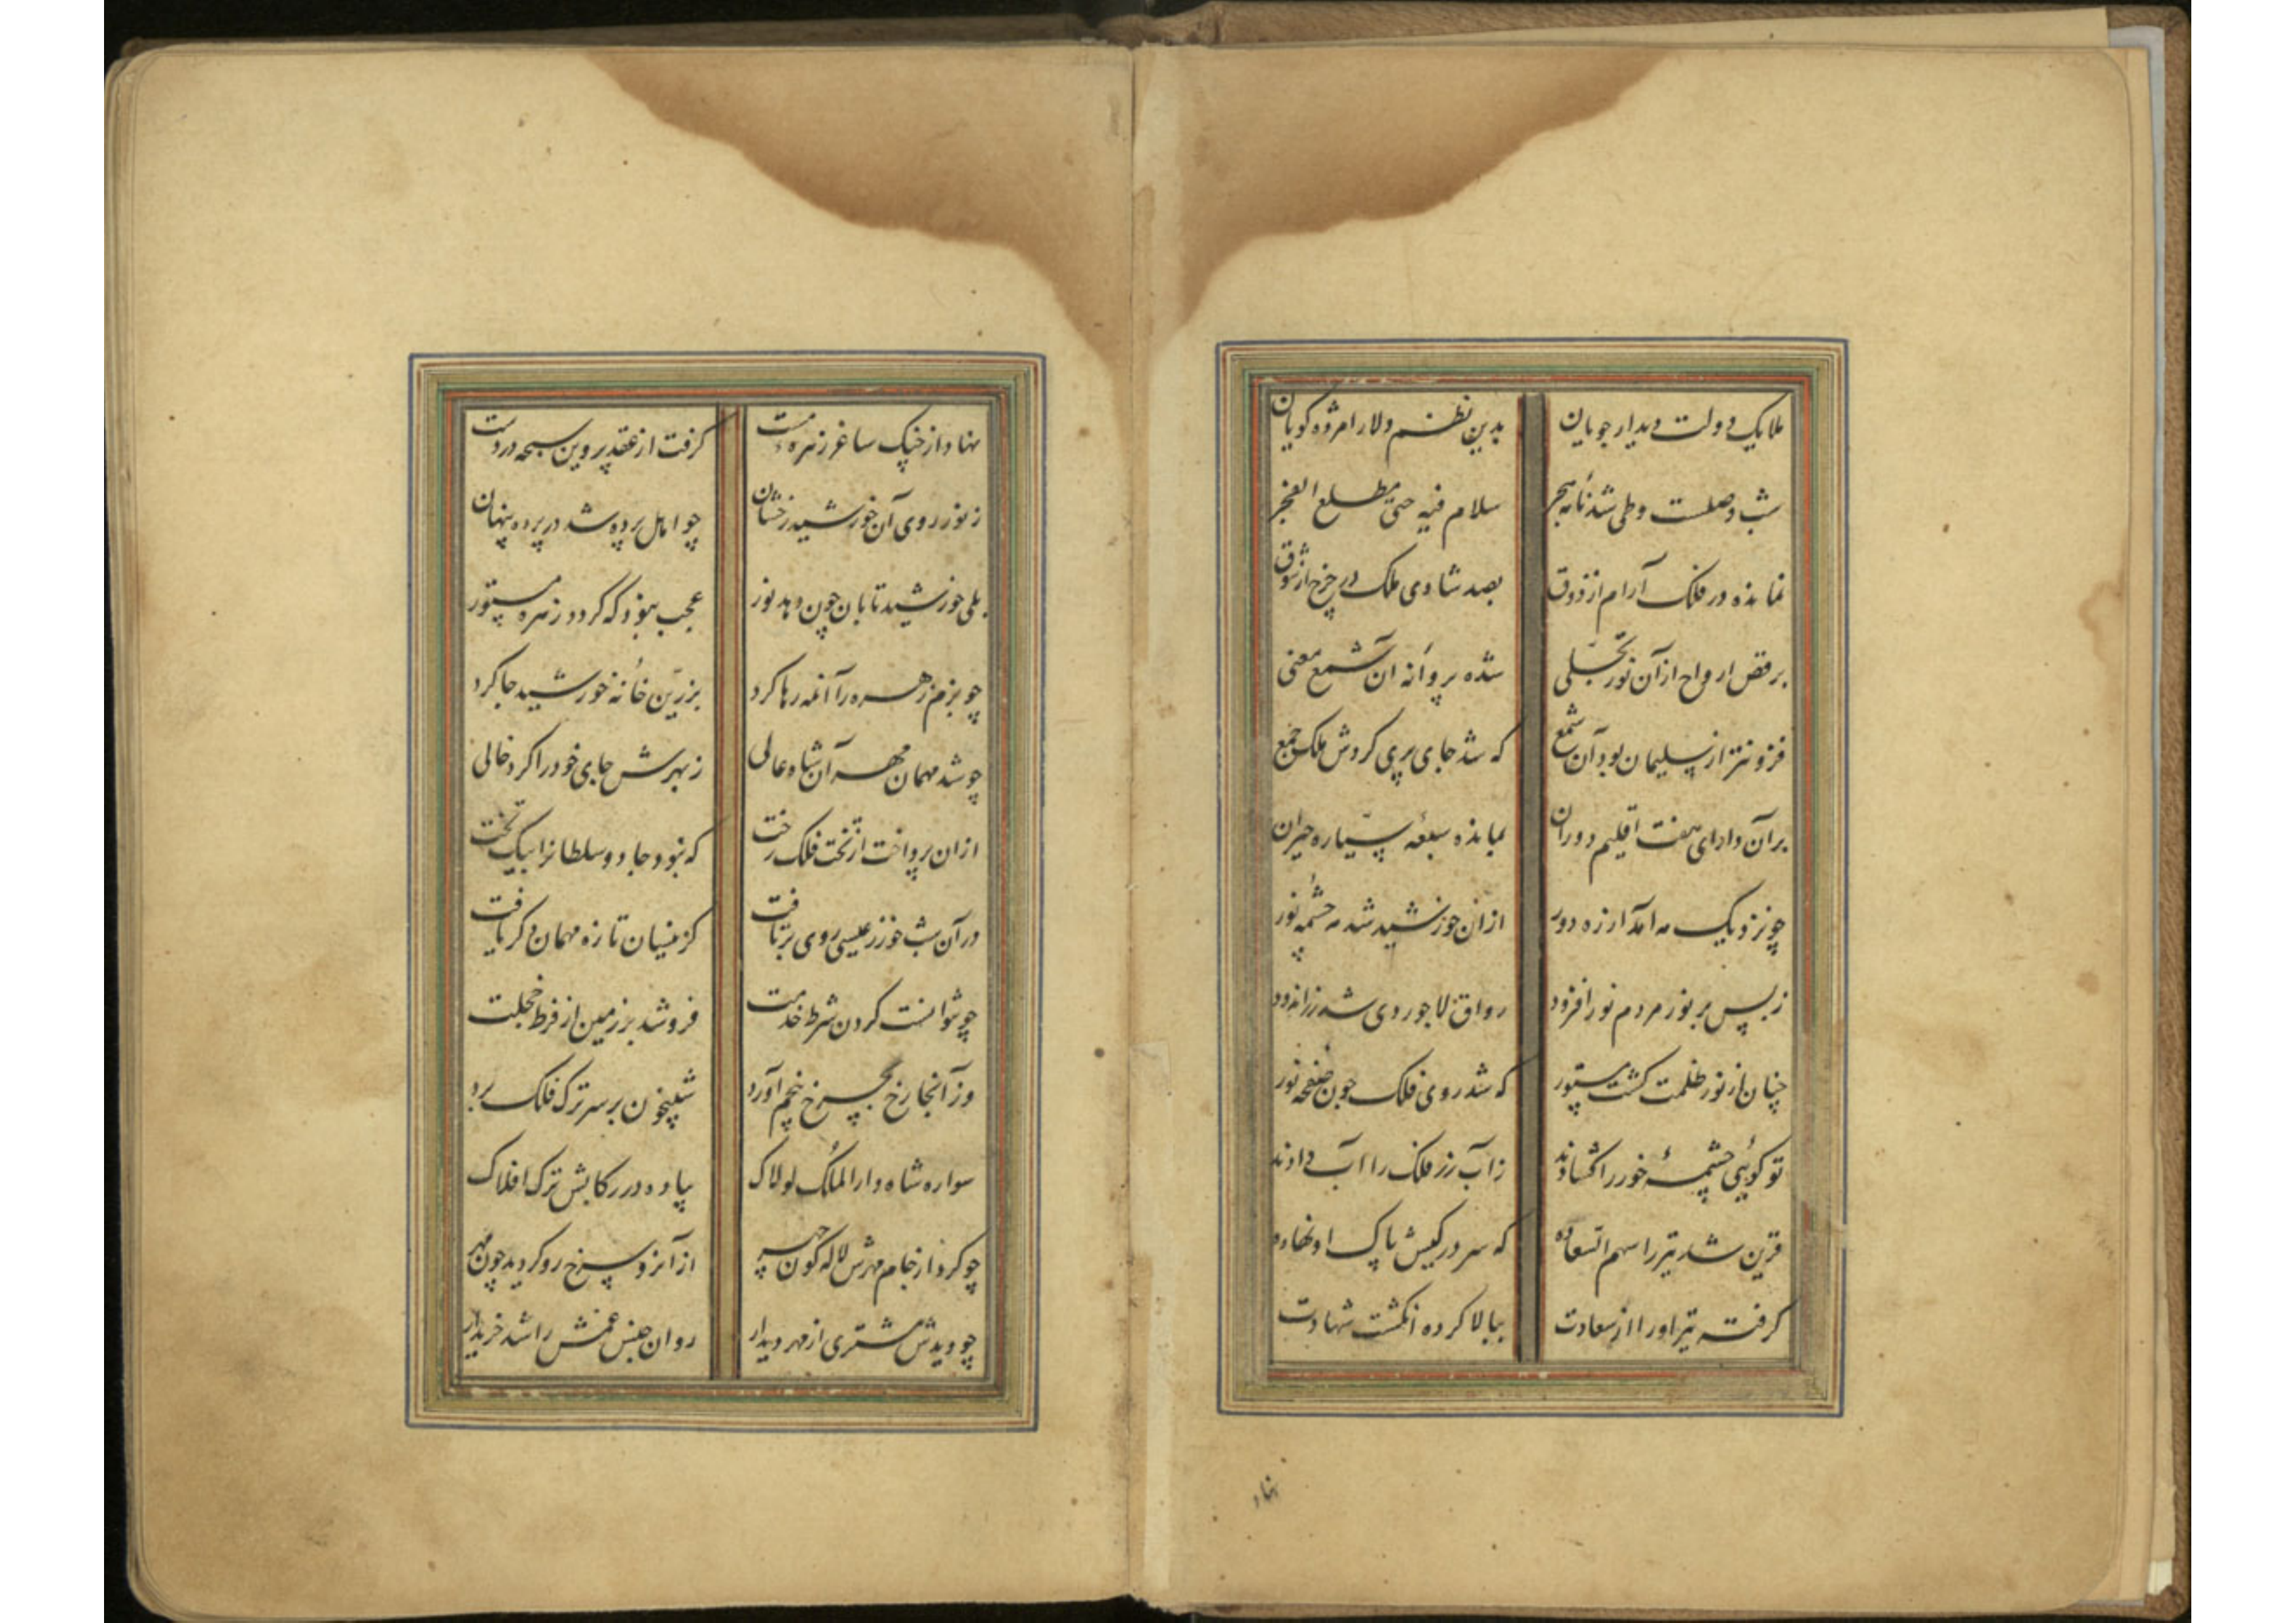 ملایک دولت دیدار جویان بدین نظم ولا را مژده گویان
شب وصلست و طی شد نامه هجر سلام فیه حتی مطلع الفجر
نمانده در فلک آرام از ذوق بصد شادی ملک در چرخ از شوق
برقص ارواح از آن نور تجلی شده پروانه آن شمع معنی
فزونتر از سلیمان بود آن شمع که شد جای پری گردش ملک جمع
بر آن دارای هفت اقلیم دوران بمانده سبعه سیاره حیران
چو نزدیک مه آمد از ره دور از آن خورشید شد مه چشمه نور
ز بس بر نور مردم نور افزود رواق لاجوردی شد زراندود
چنان از نور ظلمت گشت مستور که شد روی فلک چون صفحه نور
تو گوئی چشمهٔ خور را گشادند ز آب زر فلک را آب دادند
قرین شد تیر را سهم السعاده که سر در کیش پاک او نهاده
گرفته تیر او را از سعادت ببالا کرده انگشت شهادت
نهاد
نهاد از چنگ ساغر زهره مست گرفت از عقد پروین سبحه در دست
ز نور روی آن خورشید رخشان چو اهل پرده شد در پرده پنهان
بلی خورشید تابان چون دهد نور عجب نبود که گردد زهره مستور
چو بزم زهره را آنمه رها کرد بزرین خانه خورشید جا کرد
چو شد مهمان مهر آن شاه عالی ز بهرش جای خود را کرد خالی
از ان پرداخت از تخت فلک رخت که نبود جا دو سلطانرا بیک تخت
در آن شب خور ز عیسی روی برتافت کز مینسان تازه مهمان دگر یافت
چو نتوانست کردن شرط خدمت فرو شد بر زمین از فرط خجلت
وز آنجا رخ بچرخ پنجم آورد شبیخون بر سر ترک فلک برد
سواره شاه دار الملک لولاک پیاده در رکابش ترک افلاک
چو کرد از جام مهرش لاله گون چهر از آنرو سرخ رو گردید چون مهر
چو دیدش مشتری از مهر دیدار روان جنس غمش را شد خریدار